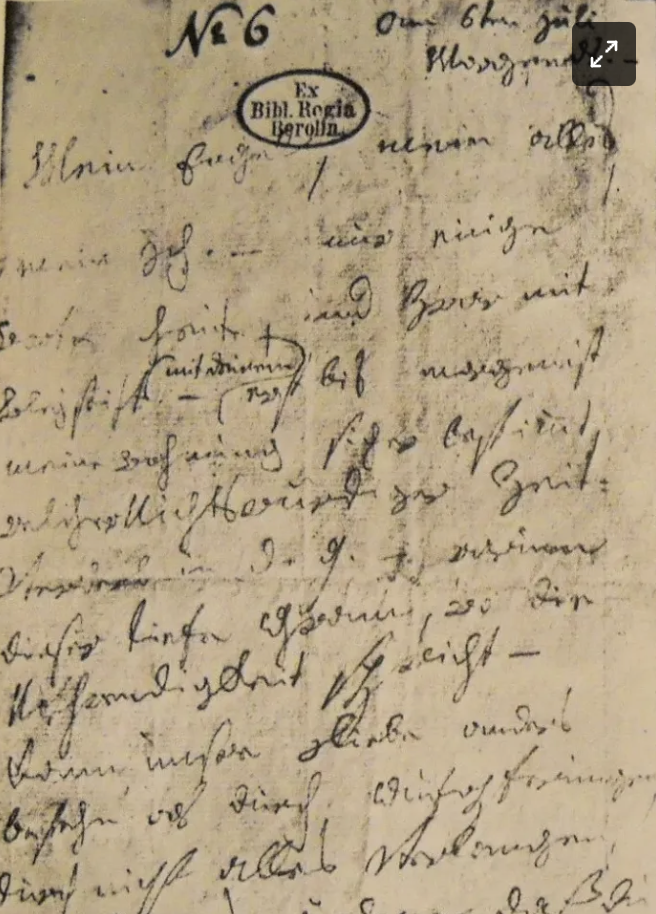 No 6
am 6ten Juli
Morgends. –
Ex
Bibl. Regia
Berolin.
Mein Engel, mein alles,
mein Ich. – nur einige
Worte heute, und zwar mit
Bleystift – (mit deinem) bis morgen ist
meine Wohnung sicher bestimmt,
welcher Nichtswürdiger Zeit-
Verderb in d. g. – warum
dieser tiefe Gram, wo die
Nothwendigkeit spricht –
Kann unsre Liebe anders
bestehn als durch Aufopferungen,
durch nicht alles Verlangen,